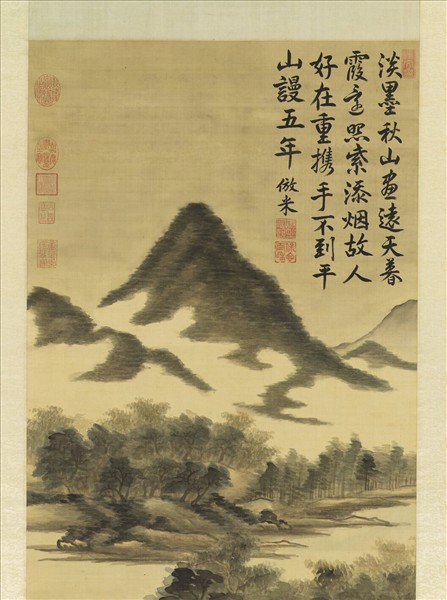 淡墨秋山畫遠天暮
霞還照紫添烟故人
好在重携手不到平
山謾五年 倣米